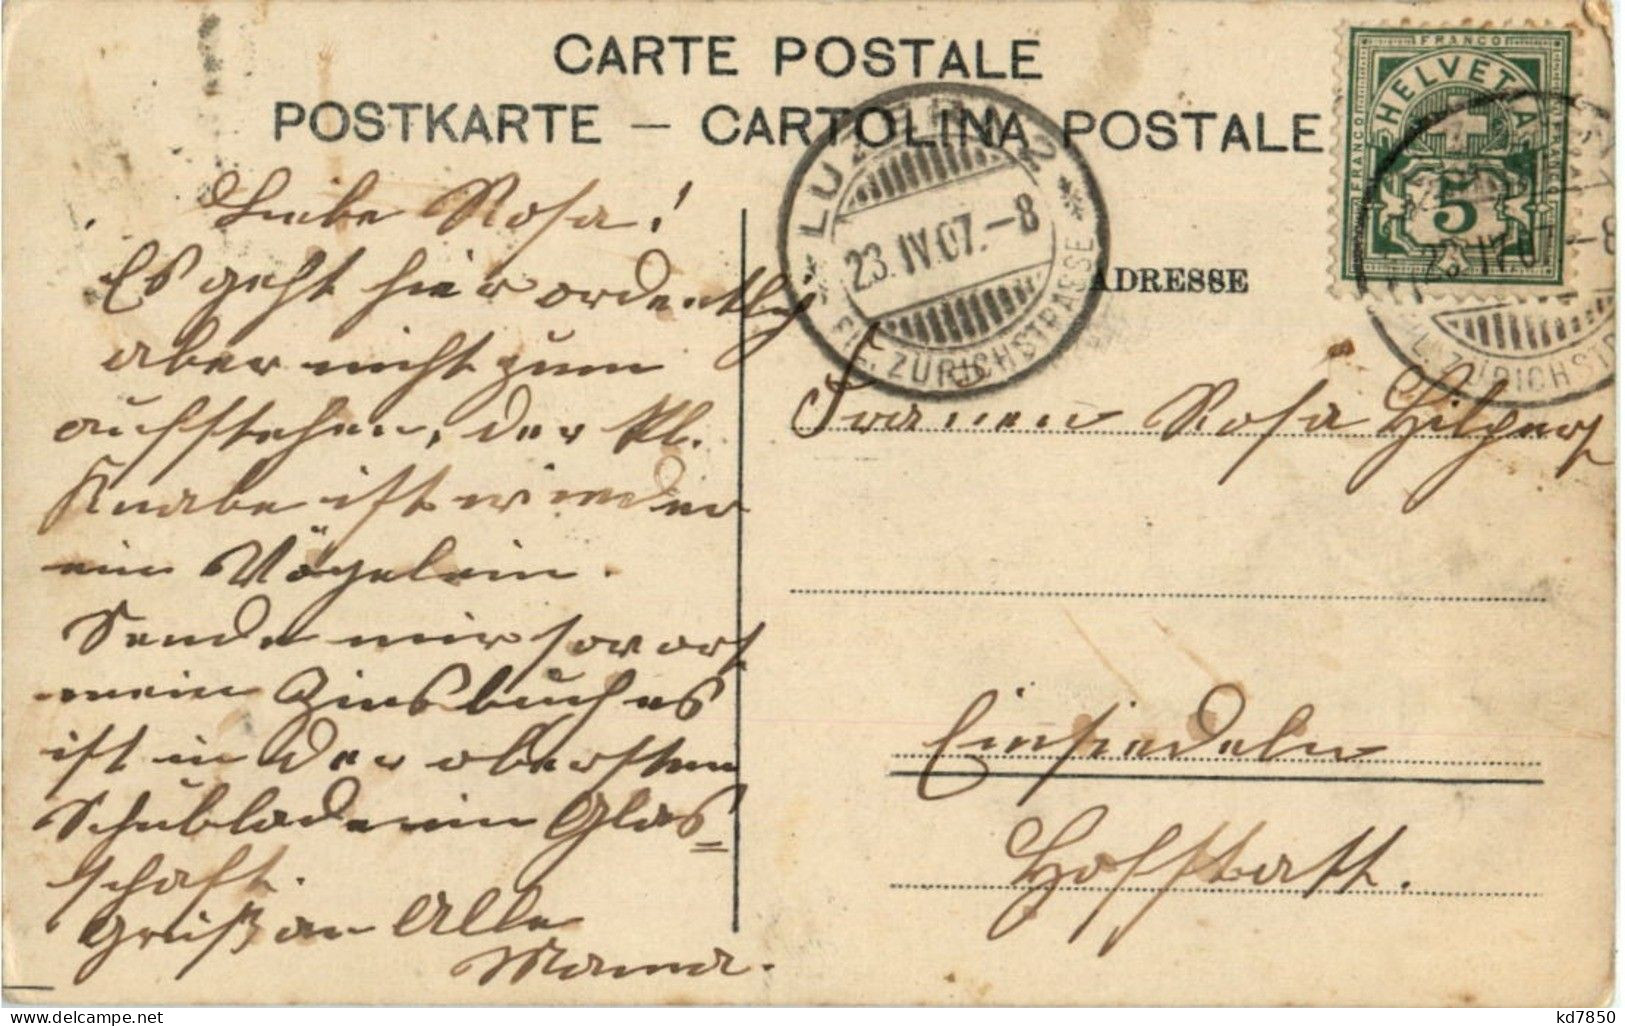 CARTE POSTALE
POSTKARTE — CARTOLINA POSTALE
FRANCO
HELVETIA
FRANCO
5
LUZERN 2
23.IV.07.–8
FIL. ZÜRICHSTRASSE
23.IV.07.–8
FIL. ZÜRICHSTR
ADRESSE
Liebe Rosa!
Es geht hier ordentlich
aber nicht zum
aufstehen, der kl.
Knabe ist wieder
ein Vögelein.
Sende mir sofort
mein Zinsbuch es
ist in der obersten
Schublade im Glas=
schaft.
Gruß an Alle
Mama.
Rosa
Einsiedeln
Hofstatt.
kd7850